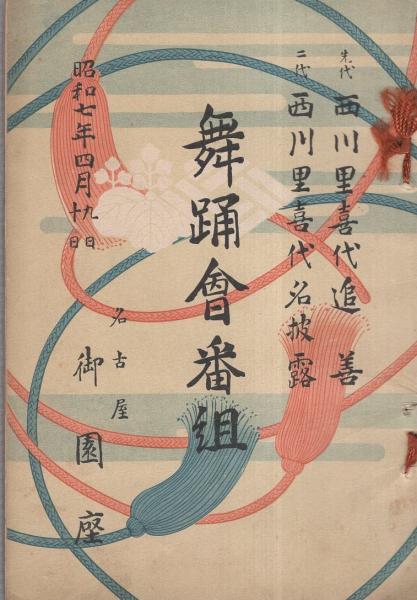 先代 西川里喜代追善
二代 西川里喜代名披露
舞踊會番組
昭和七年四月九日十日
名古屋 御園座